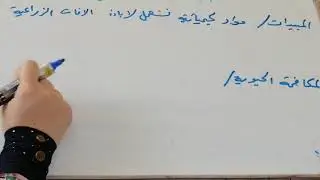 المبيدات / مواد كيميائية تستعمل لابادة الافات الزراعية
المكافحة الحيوية /